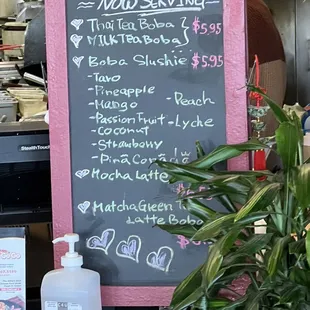 NOW SERVING
Thai Tea Boba
MILK TEA Boba
$5.95
Boba Slushie
$5.95
-Taro
-Pineapple
-Mango
-Passion Fruit
-Coconut
-Strawberry
-Peach
-Lyche
Mocha Latte
Matcha Green
Latte Boba
StealthTouch